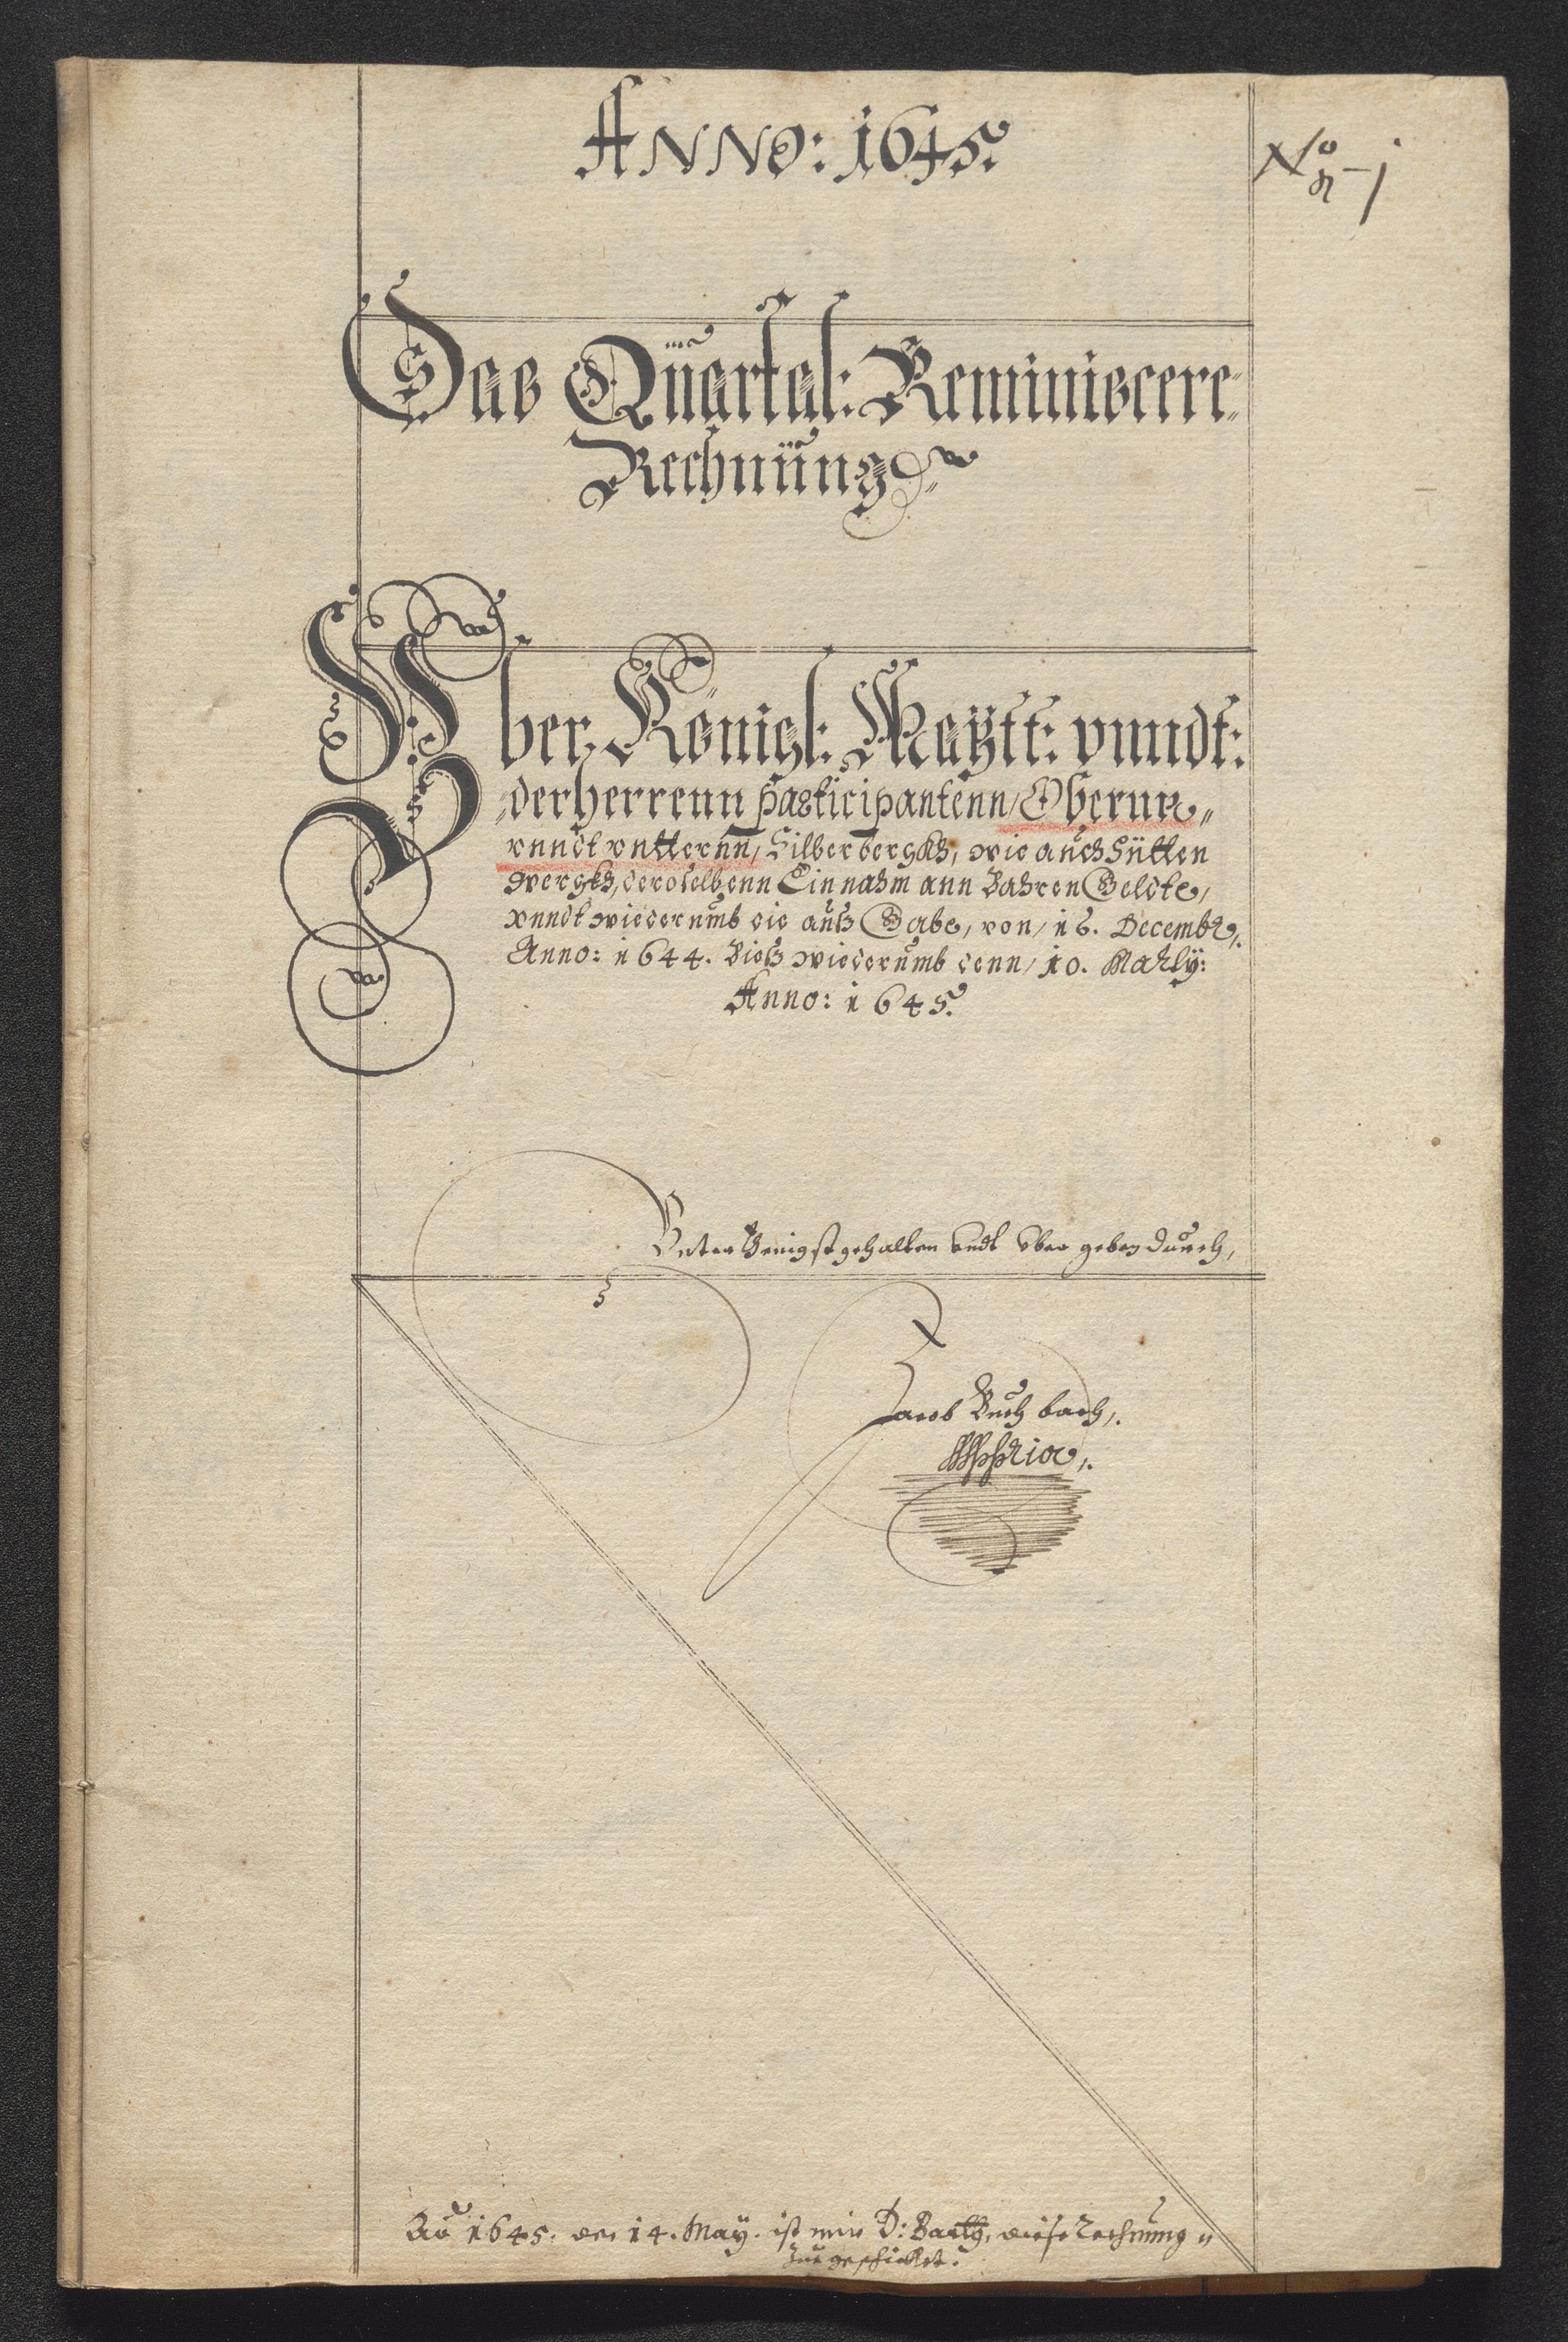 Anno: 1645.
No 1
Das Quartal: Reminiscere
Rechnüng
Vber Königl: Maÿtt: vnndt:
der herrenn participantenn, Obernn
vnndt vntternn, Silberbergkh, wie auch hütten
wergkh, deroselbenn Einnahm ann Bahren Geldte,
vnndt wiederumb die auß Gabe, von, 16. Decembr,.
Anno: 1644. Bieß wiederumb denn, 10. Marty:
Anno: 1645.
Vnterthenigst gehalten vndt vber geben durch,
Jacob Buchbach,.
Mppria,.
Ao 1645. den 14. Maÿ. ist mir D: Barth, diese rechnung
zue geschicket.